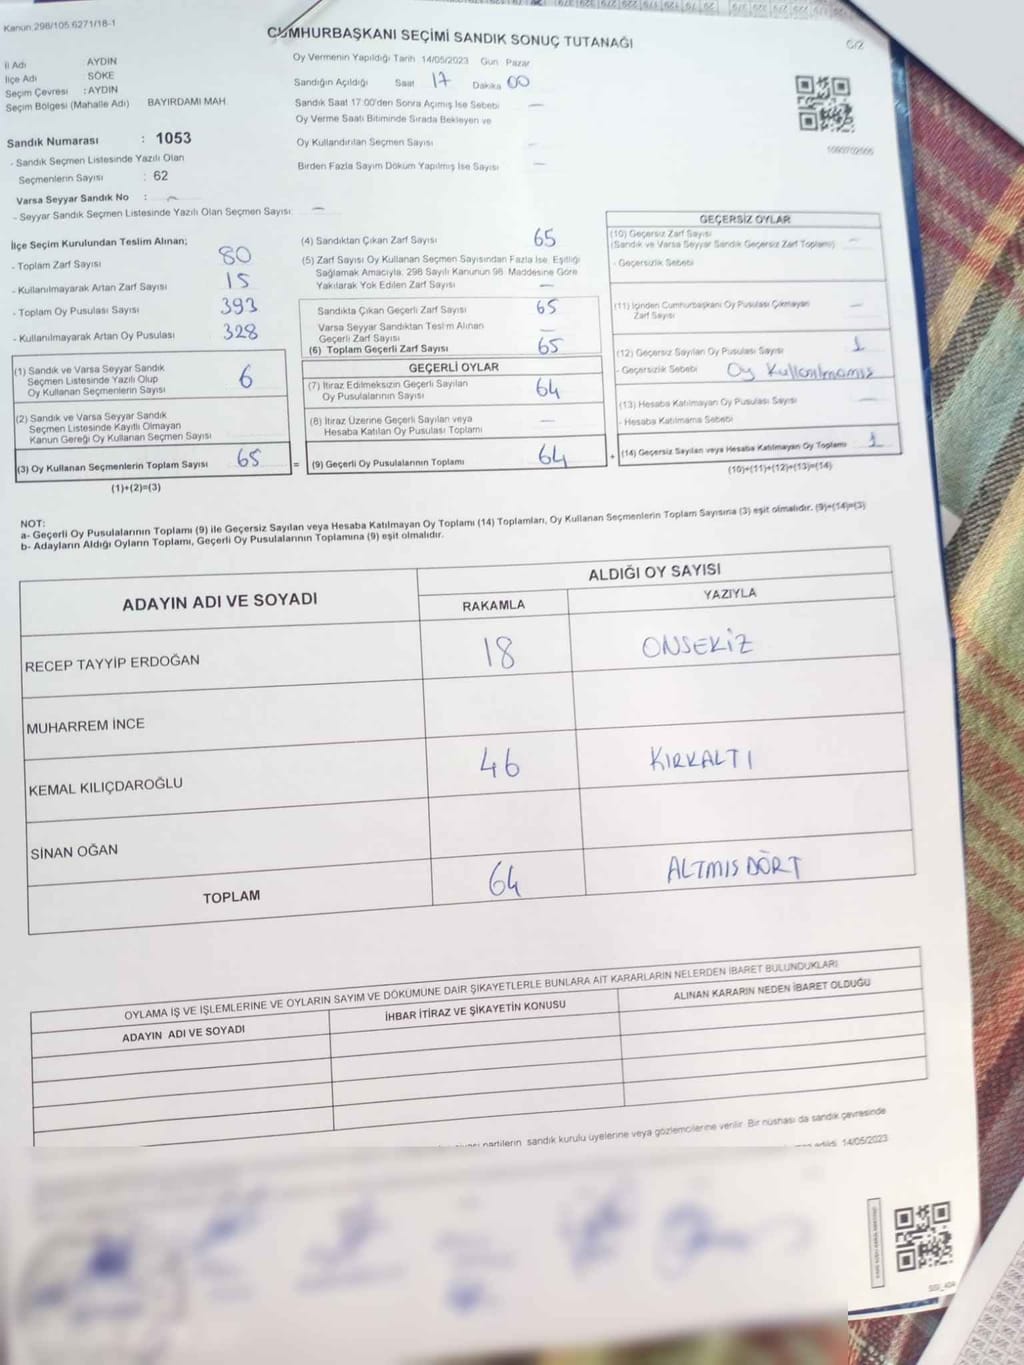 Kanun 298/105 6271/18-1
CUMHURBAŞKANI SEÇİMİ SANDIK SONUÇ TUTANAĞI
C/2
İl Adı AYDIN
İlçe Adı SÖKE
Seçim Çevresi : AYDIN
Seçim Bölgesi (Mahalle Adı) BAYIRDAMI MAH.
Oy Vermenin Yapıldığı Tarih 14/05/2023 Gün Pazar
Sandığın Açıldığı Saat 17 Dakika 00
Sandık Saat 17:00'den Sonra Açımış İse Sebebi —
Oy Verme Saati Bitiminde Sırada Bekleyen ve
Oy Kullandırılan Seçmen Sayısı —
Birden Fazla Sayım Döküm Yapılmış İse Sayısı —
Sandık Numarası : 1053
- Sandık Seçmen Listesinde Yazılı Olan
Seçmenlerin Sayısı : 62
Varsa Seyyar Sandık No : —
- Seyyar Sandık Seçmen Listesinde Yazılı Olan Seçmen Sayısı: —
İlçe Seçim Kurulundan Teslim Alınan;
- Toplam Zarf Sayısı 80
- Kullanılmayarak Artan Zarf Sayısı 15
- Toplam Oy Pusulası Sayısı 393
- Kullanılmayarak Artan Oy Pusulası 328
(1) Sandık ve Varsa Seyyar Sandık
Seçmen Listesinde Yazılı Olup
Oy Kullanan Seçmenlerin Sayısı 6
(2) Sandık ve Varsa Seyyar Sandık
Seçmen Listesinde Kayıtlı Olmayan
Kanun Gereği Oy Kullanan Seçmen Sayısı
(3) Oy Kullanan Seçmenlerin Toplam Sayısı 65
(1)+(2)=(3)
(4) Sandıktan Çıkan Zarf Sayısı 65
(5) Zarf Sayısı Oy Kullanan Seçmen Sayısından Fazla İse, Eşitliği
Sağlamak Amacıyla, 298 Sayılı Kanunun 98. Maddesine Göre
Yakılarak Yok Edilen Zarf Sayısı —
Sandıkta Çıkan Geçerli Zarf Sayısı 65
Varsa Seyyar Sandıktan Teslim Alınan
Geçerli Zarf Sayısı —
(6) Toplam Geçerli Zarf Sayısı 65
GEÇERLİ OYLAR
(7) İtiraz Edilmeksizin Geçerli Sayılan
Oy Pusulalarının Sayısı 64
(8) İtiraz Üzerine Geçerli Sayılan veya
Hesaba Katılan Oy Pusulası Toplamı —
= (9) Geçerli Oy Pusulalarının Toplamı 64
GEÇERSİZ OYLAR
(10) Geçersiz Zarf Sayısı
(Sandık ve Varsa Seyyar Sandık Geçersiz Zarf Toplamı) —
- Geçersizlik Sebebi
(11) İçinden Cumhurbaşkanı Oy Pusulası Çıkmayan
Zarf Sayısı —
(12) Geçersiz Sayılan Oy Pusulası Sayısı 1
- Geçersizlik Sebebi Oy Kullanılmamış
(13) Hesaba Katılmayan Oy Pusulası Sayısı —
- Hesaba Katılmama Sebebi
+ (14) Geçersiz Sayılan veya Hesaba Katılmayan Oy Toplamı 1
(10)+(11)+(12)+(13)=(14)
NOT:
a- Geçerli Oy Pusulalarının Toplamı (9) ile Geçersiz Sayılan veya Hesaba Katılmayan Oy Toplamı (14) Toplamları, Oy Kullanan Seçmenlerin Toplam Sayısına (3) eşit olmalıdır. (9)+(14)=(3)
b- Adayların Aldığı Oyların Toplamı, Geçerli Oy Pusulalarının Toplamına (9) eşit olmalıdır.
ADAYIN ADI VE SOYADI ALDIĞI OY SAYISI
RAKAMLA YAZIYLA
RECEP TAYYİP ERDOĞAN 18 ONSEKİZ
MUHARREM İNCE
KEMAL KILIÇDAROĞLU 46 KIRKALTI
SİNAN OĞAN
TOPLAM 64 ALTMIS DÖRT
OYLAMA İŞ VE İŞLEMLERİNE VE OYLARIN SAYIM VE DÖKÜMÜNE DAİR ŞİKAYETLERLE BUNLARA AİT KARARLARIN NELERDEN İBARET BULUNDUKLARI
ADAYIN ADI VE SOYADI İHBAR İTİRAZ VE ŞİKAYETİN KONUSU ALINAN KARARIN NEDEN İBARET OLDUĞU
partilerin sandık kurulu üyelerine veya gözlemcilerine verilir. Bir nüshası da sandık çevresinde
14/05/2023